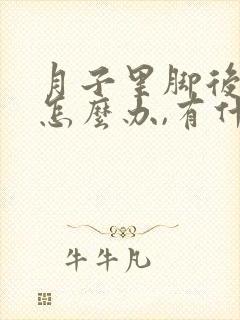 月子里脚後
怎麽办,有什
牛牛凡